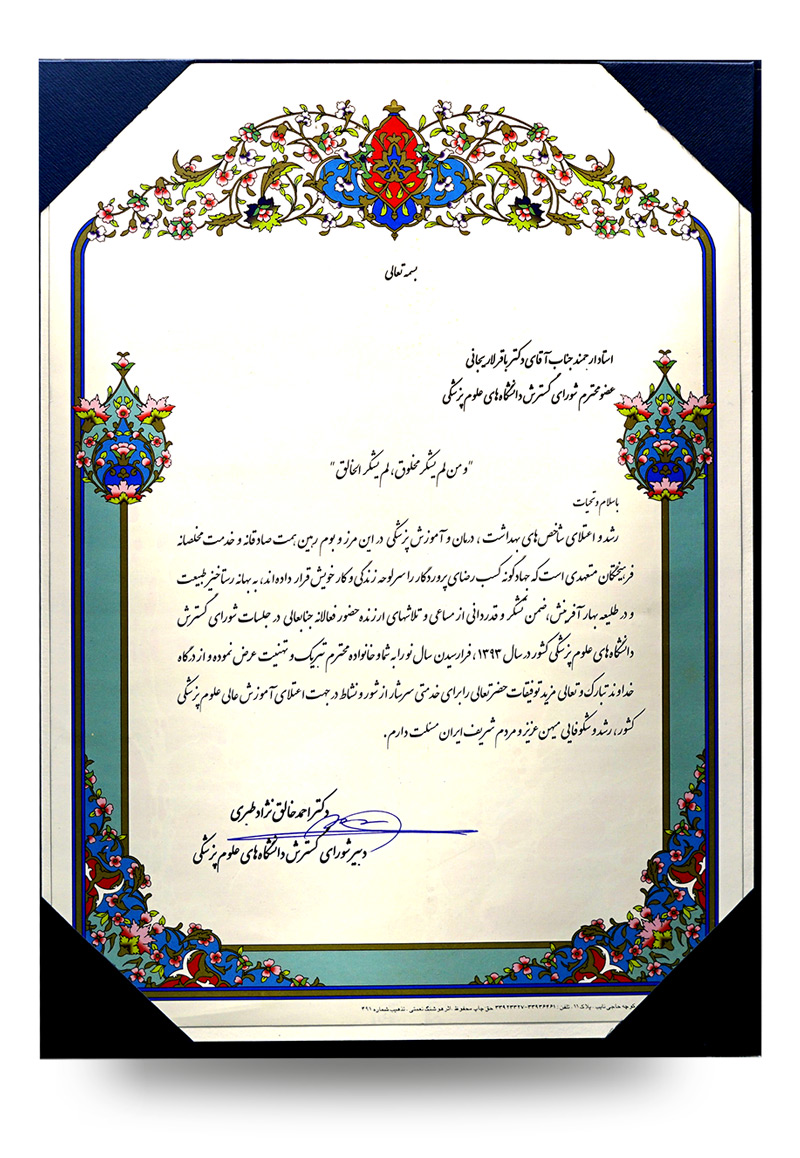 بسمه تعالی
استاد ارجمند جناب آقای دکتر باقر لاریجانی
عضو محترم شورای گسترش دانشگاه های علوم پزشکی
"و من لم یشکر مخلوق، لم یشکر الخالق"
باسلام و تحیات
رشد و اعتلای شاخص های بهداشت ، درمان و آموزش پزشکی در این مرز و بوم رهین همت صادقانه و خدمت مخلصانه
فرهیختگان متعهدی است که جهادگونه کسب رضای پروردگار را سرلوحه زندگی و کار خویش قرار داده اند، به بهانه رستاخیز طبیعت
و در طلیعه بهار آفرینش، ضمن تشکر و قدردانی از مساعی و تلاشهای ارزنده حضور فعالانه جنابعالی در جلسات شورای گسترش
دانشگاه های علوم پزشکی کشور در سال ۱۳۹۳ ، فرارسیدن سال نو را به شما و خانواده محترم تبریک و تهنیت عرض نموده و از درگاه
خداوند تبارک و تعالی مزید توفیقات حضرتعالی را برای خدمتی سرشار از شور و نشاط در جهت اعتلای آموزش عالی علوم پزشکی
کشور، رشد و شکوفایی میهن عزیز و مردم شریف ایران مسئلت دارم.
دکتر احمد خالق نژاد طبری
دبیر شورای گسترش دانشگاه های علوم پزشکی
کوچه حاجی نایب . پلاک ۱۱ . تلفن : ۳۳۹۳۶۴۶۱-۳۳۹۲۳۳۲۷ حق چاپ محفوظ . اثر هوشنگ نعمتی . تذهیب شماره ۴۹۱